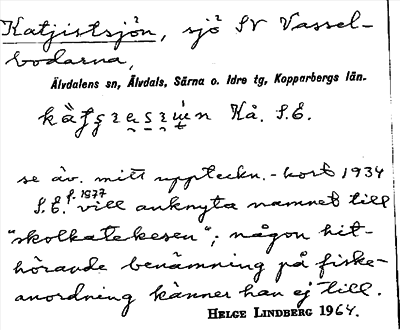 Katjistsjön, sjö SV Vassel-
bodarna,
Älvdalens sn, Älvdals, Särna o. Idre tg, Kopparbergs län.
Kå. S.E.
se äv. mitt uppteckn.-kort 1934
S.E. f. 1877 vill anknyta namnet till
"skolkatekesen"; någon hit-
hörande benämning på fiske-
anordning känner han ej till.
HELGE LINDBERG 1964.